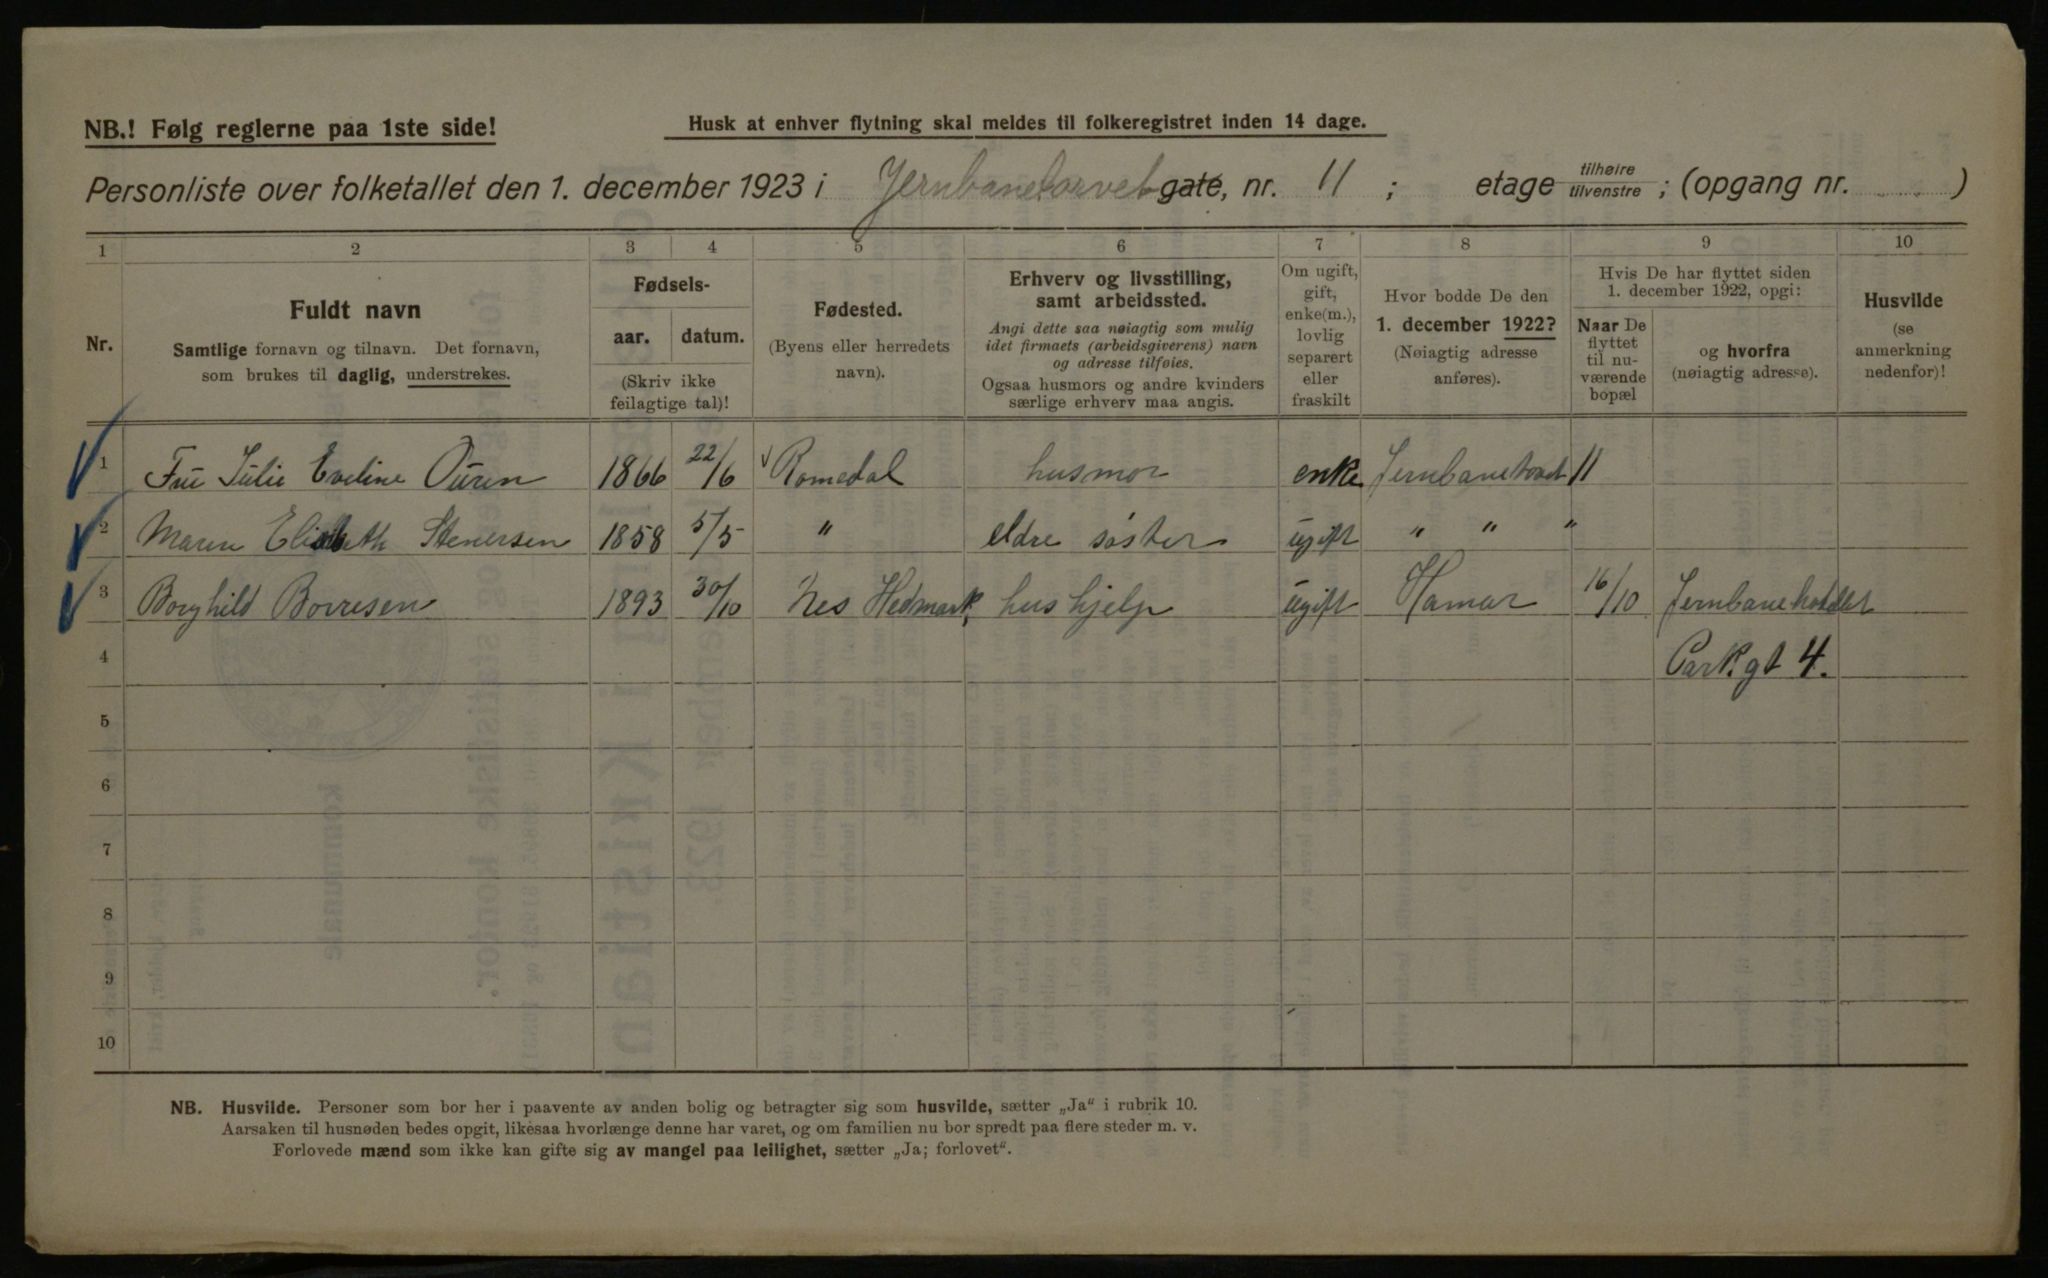 NB.! Følg reglerne paa 1ste side!
Husk at enhver flytning skal meldes til folkeregistret inden 14 dage.
Personliste over folketallet den 1. december 1923 i Jernbanetorvet gate, nr. 11 ; etage tilhøire tilvenstre ; (opgang nr. )
1 2 3 4 5 6 7 8 9 10
Nr.
Fuldt navn
Samtlige fornavn og tilnavn. Det fornavn,
som brukes til daglig, understrekes.
Fødsels-
aar. datum.
(Skriv ikke
feilagtige tal)!
Fødested.
(Byens eller herredets
navn).
Erhverv og livsstilling,
samt arbeidssted.
Angi dette saa nøiagtig som mulig
idet firmaets (arbeidsgiverens) navn
og adresse tilføies.
Ogsaa husmors og andre kvinders
særlige erhverv maa angis.
Om ugift,
gift,
enke(m.),
lovlig
separert
eller
fraskilt
Hvor bodde De den
1. december 1922?
(Nøiagtig adresse
anføres).
Hvis De har flyttet siden
1. december 1922, opgi:
Naar De
flyttet
til nu-
værende
bopæl
og hvorfra
(nøiagtig adresse).
Husvilde
(se
anmerkning
nedenfor)!
1 Fru Julie Eveline Ouren 1866 22/6 Romedal husmor enke Jernbanetorvet 11
2 Maren Elisabeth Stenersen 1858 5/5 " eldre søster ugift " " "
3 Borghild Borresen 1893 30/10 Nes Hedmark, hushjelp ugift Hamar 16/10 Jernbanehotellet
4 Parkgt 4.
5
6
7
8
9
10
NB. Husvilde. Personer som bor her i paavente av anden bolig og betragter sig som husvilde, sætter „Ja“ i rubrik 10.
Aarsaken til husnøden bedes opgit, likesaa hvorlænge denne har varet, og om familien nu bor spredt paa flere steder m. v.
Forlovede mænd som ikke kan gifte sig av mangel paa leilighet, sætter „Ja; forlovet“.